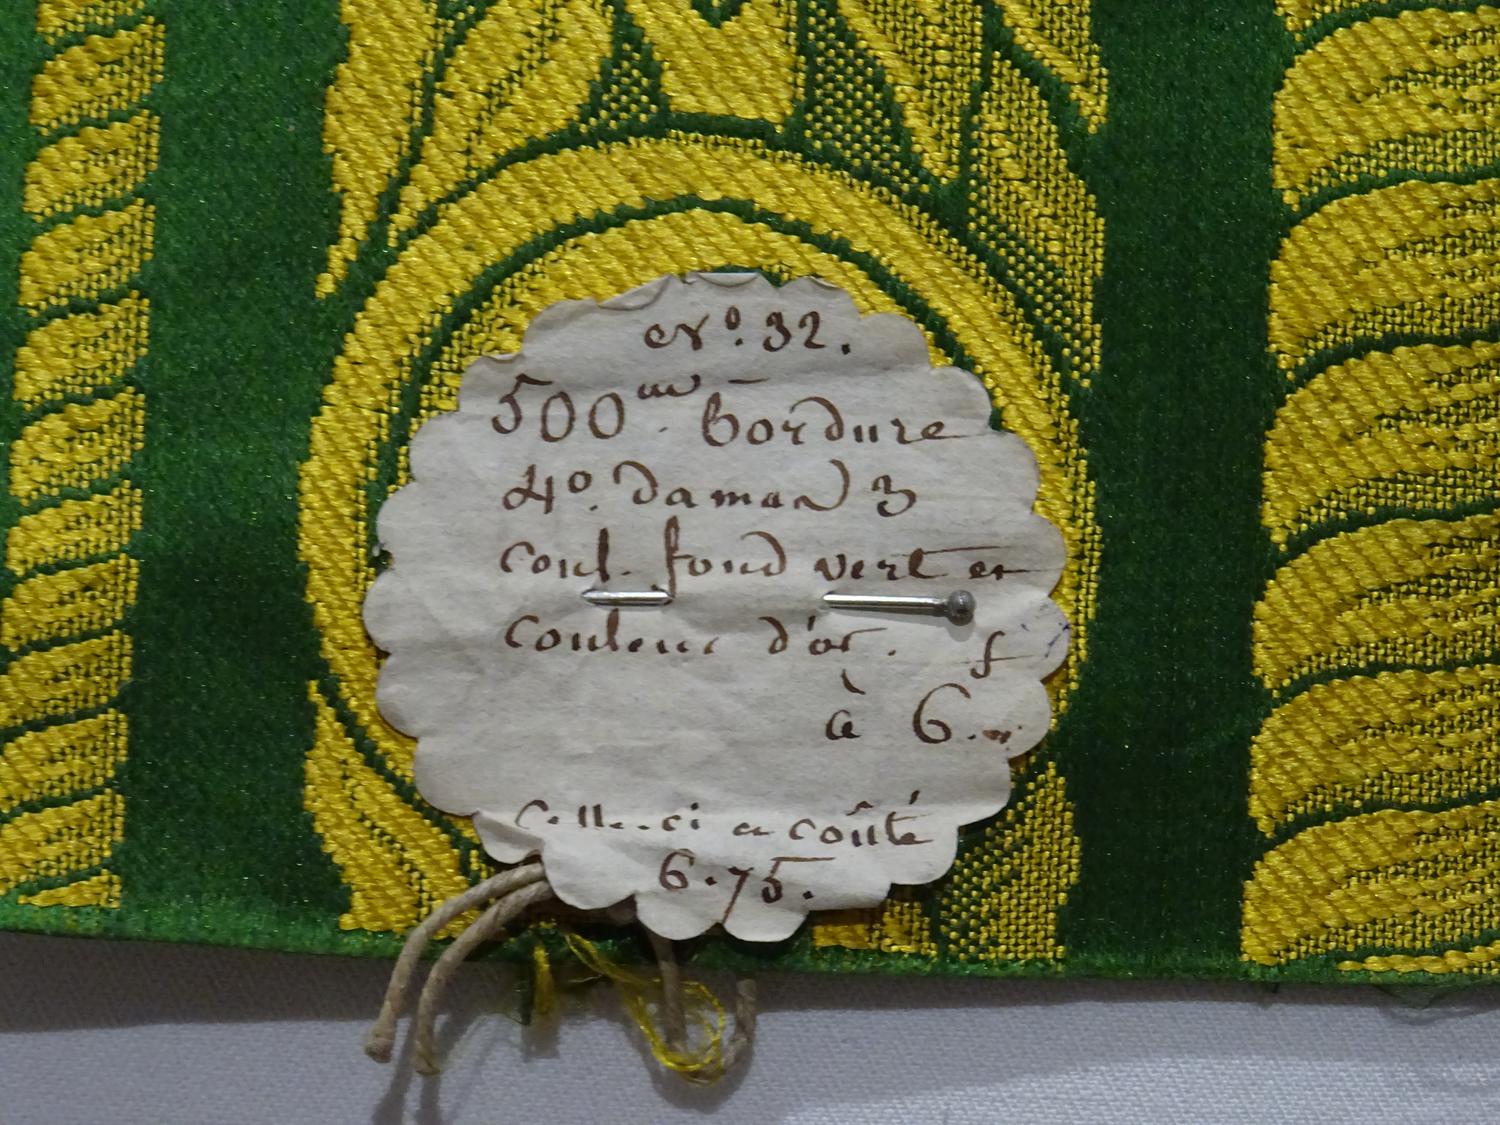 N° 32.
500 m. Bordure
4° damas 3
coul. fond vert et
couleur d'or. f
à 6.
Celle-ci a coûté
6.75.